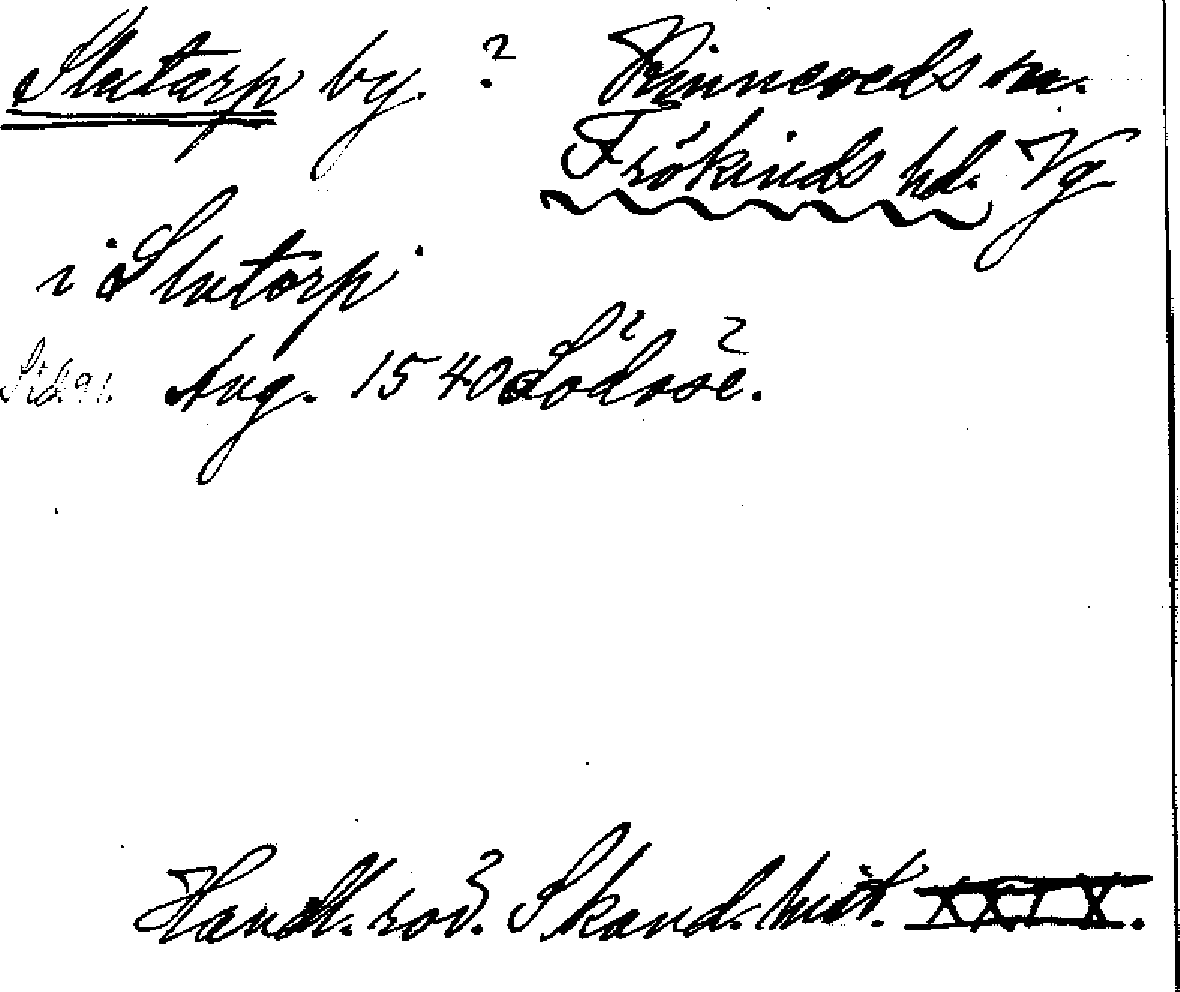 Slutarp by. ? Kinneveds sn.
Frökinds hd. Vg
i Slutorp
Sid 91. Aug. 1540 Lödose.
Handl. rör. Skand. hist. XXIX.